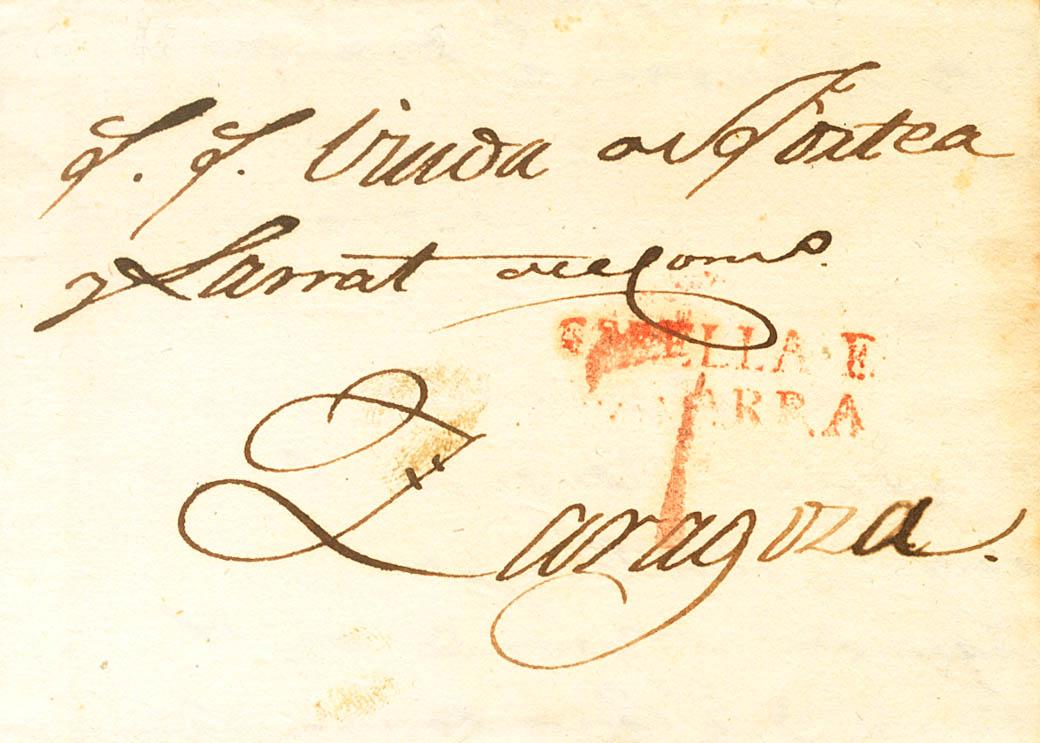 S. S. Viuda de Fortea
y Larrat del Com.º
ESTELLA·E
NAVARRA
Zaragoza.